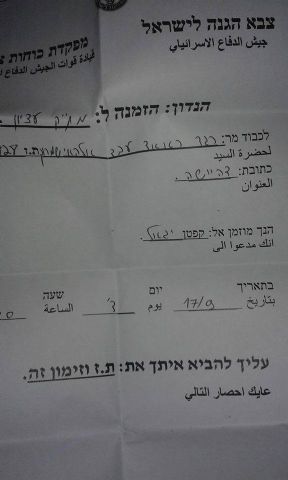 צבא הגנה לישראל
جيش الدفاع الاسرائيلي
מפקדת כוחות
قيادة قوات الجيش الدفاع
הנדון: הזמנה ל: מת"ק עציון
לכבוד מר:
لحضرة السيد
כתובת: דהיישה.
العنوان
הנך מוזמן אל: קפטן יגאל.
انك مدعوا الى
בתאריך יום שעה
בتاريخ 17/9 يوم ד' الساعة
עליך להביא איתך את: ת.ז וזימון זה.
عليك احضار التالي